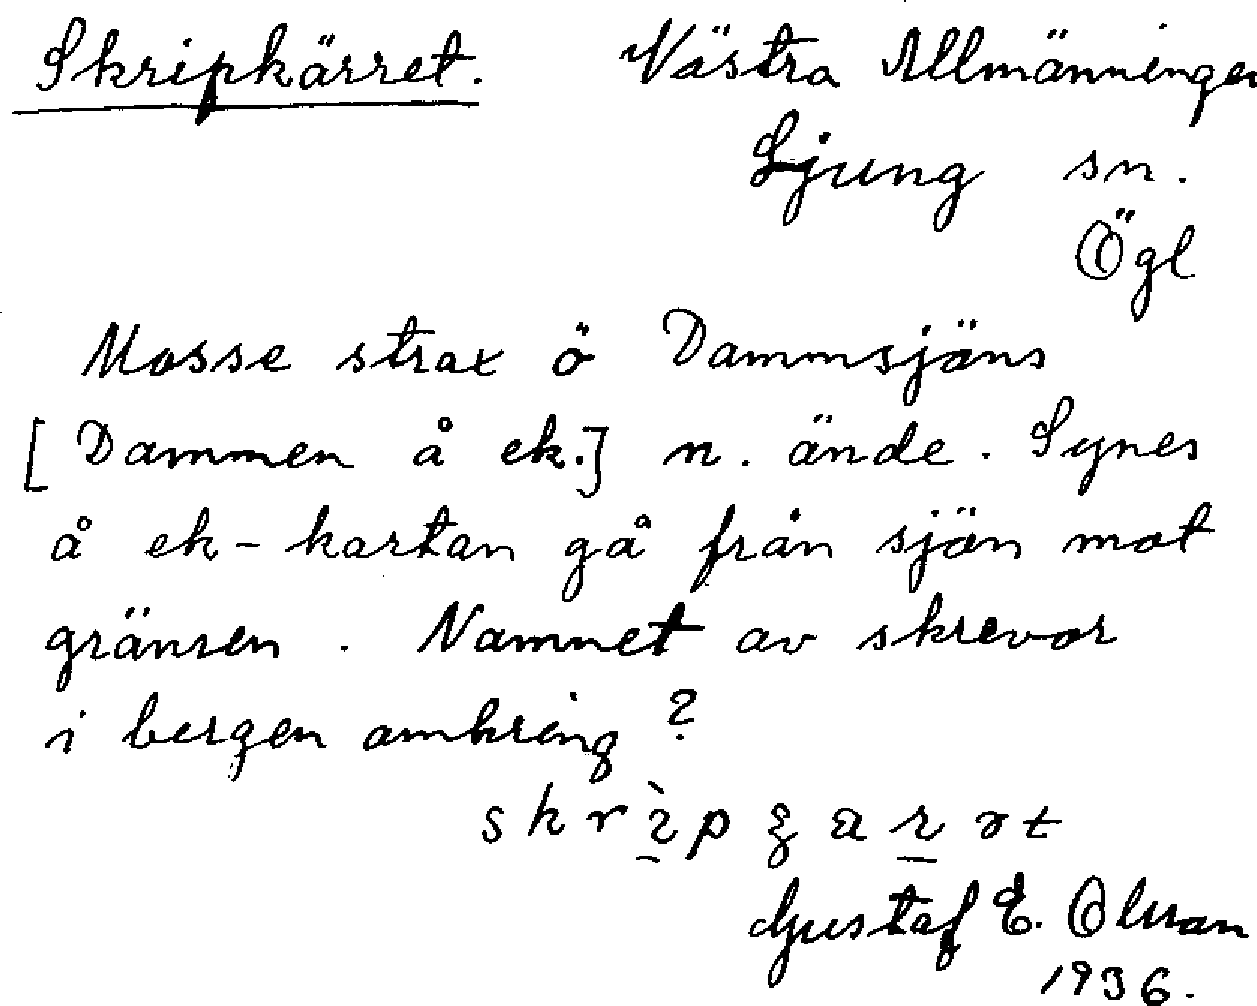 Skripkärret. Västra Allmänningen
Ljung sn.
Ögl
Mosse strax ö Dammsjöns
[Dammen å ek.] n. ände. Synes
å ek-kartan gå från sjön mot
gränsen. Namnet av skrevor
i bergen omkring?
Gustaf E. Olsson
1936.